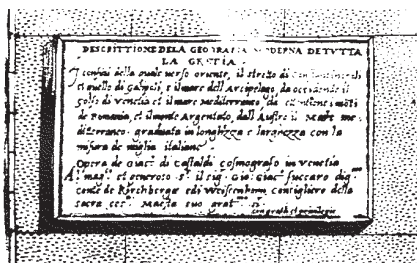 DESCRITTIONE DELA GEOGRAFIA MODERNA DE TVTTA
LA GRETIA
I confini della quale verso oriente, il stretto di
et quello di Galipoli, e il mare dell Arcipelago, da occidente il
golfo di Venetia et il mare Mediterraneo, da i mōti
de Romania, et il monte Argentato, dall Austro il Mare me
diterraneo graduata in longhezza e larghezza con la
misura de miglia italiane
Opera de Giacº di Castaldi Cosmografo in Venetia
Al magº et generoso Sʳ il sig. Gio: Giacº fuccaro
conte de Kirchberge edi Weissenhorn consigliero della
sacra ces. Maesta suo
con gratia et privilegio